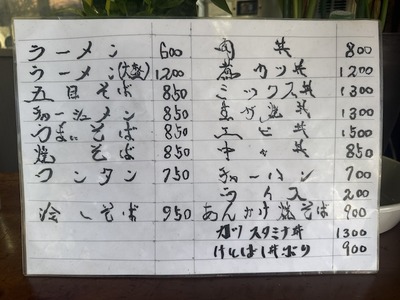 ラーメン 600
ラーメン(大盛) 1200
五目そば 850
チャーシューメン 850
うまにそば 850
焼そば 850
ワンタン 750
冷しそば 950
肉丼 800
煮カツ丼 1200
ミックス丼 1300
1300
エビ丼 1500
中華丼 850
チャーハン 700
ライス 200
あんかけ焼そば 900
カツスタミナ丼 1300
900